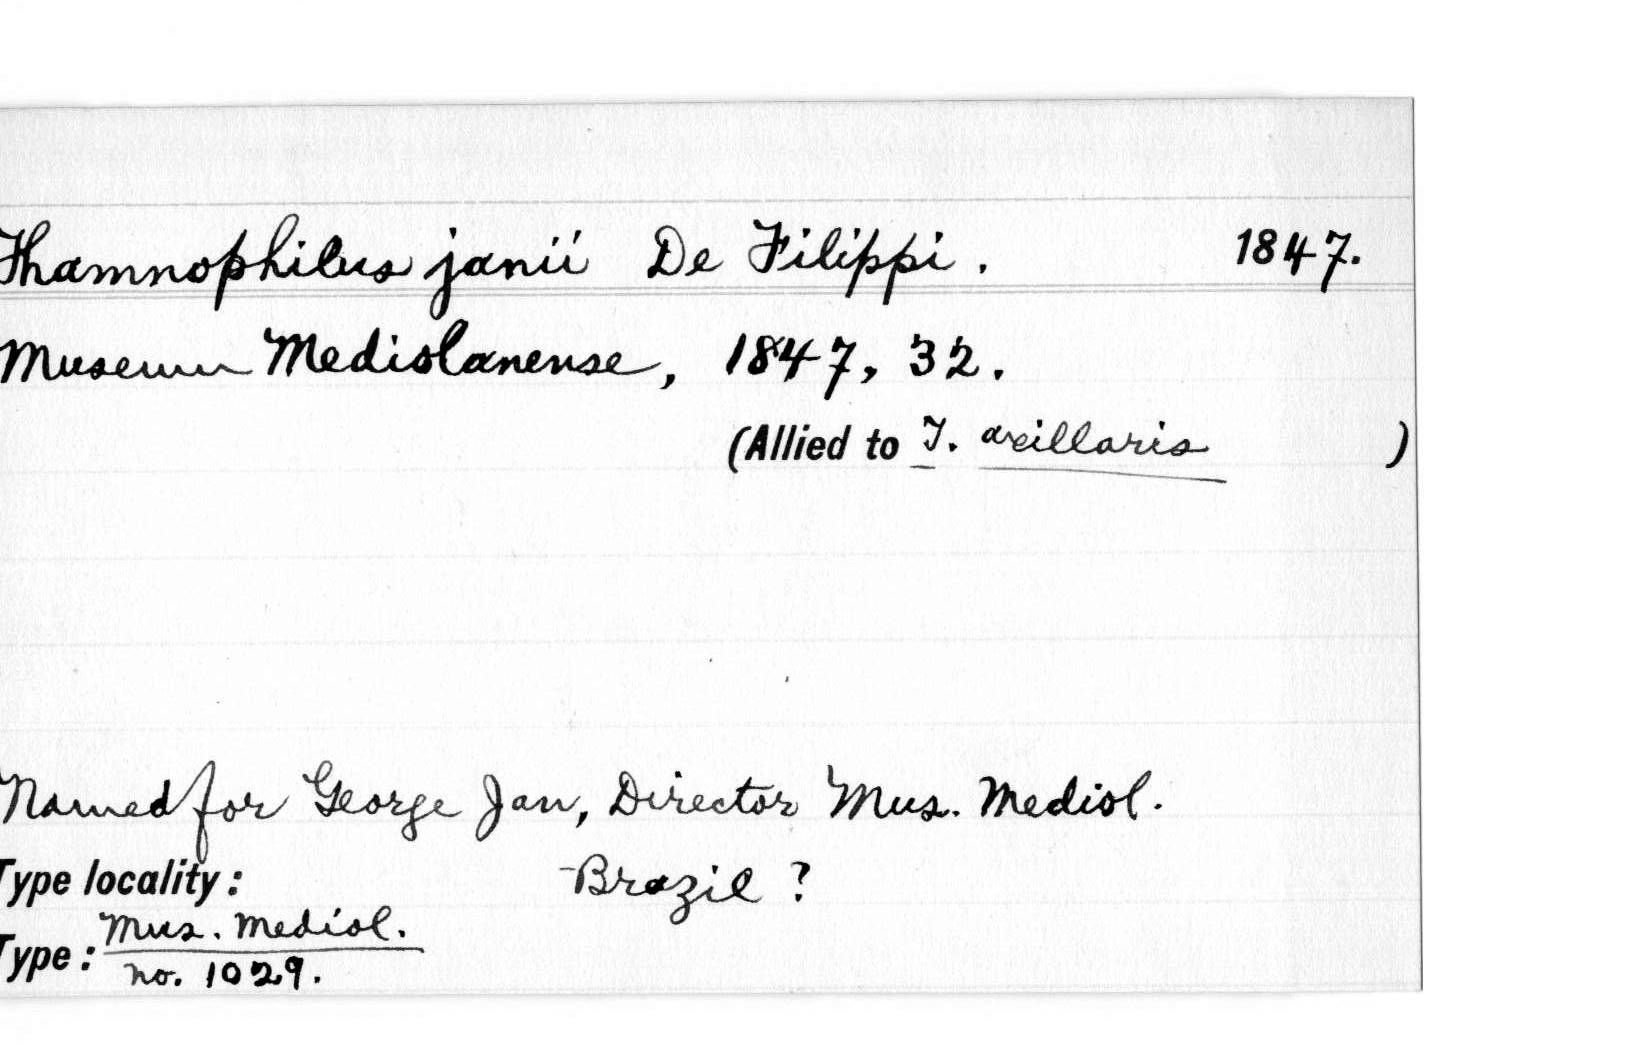 Thamnophilus janii De Filippi. 1847.
Museum Mediolanense, 1847, 32.
(Allied to T. axillaris )
Named for George Jan, Director Mus. Mediol.
Type locality: Brazil ?
Type: Mus. Mediol.
no. 1029.